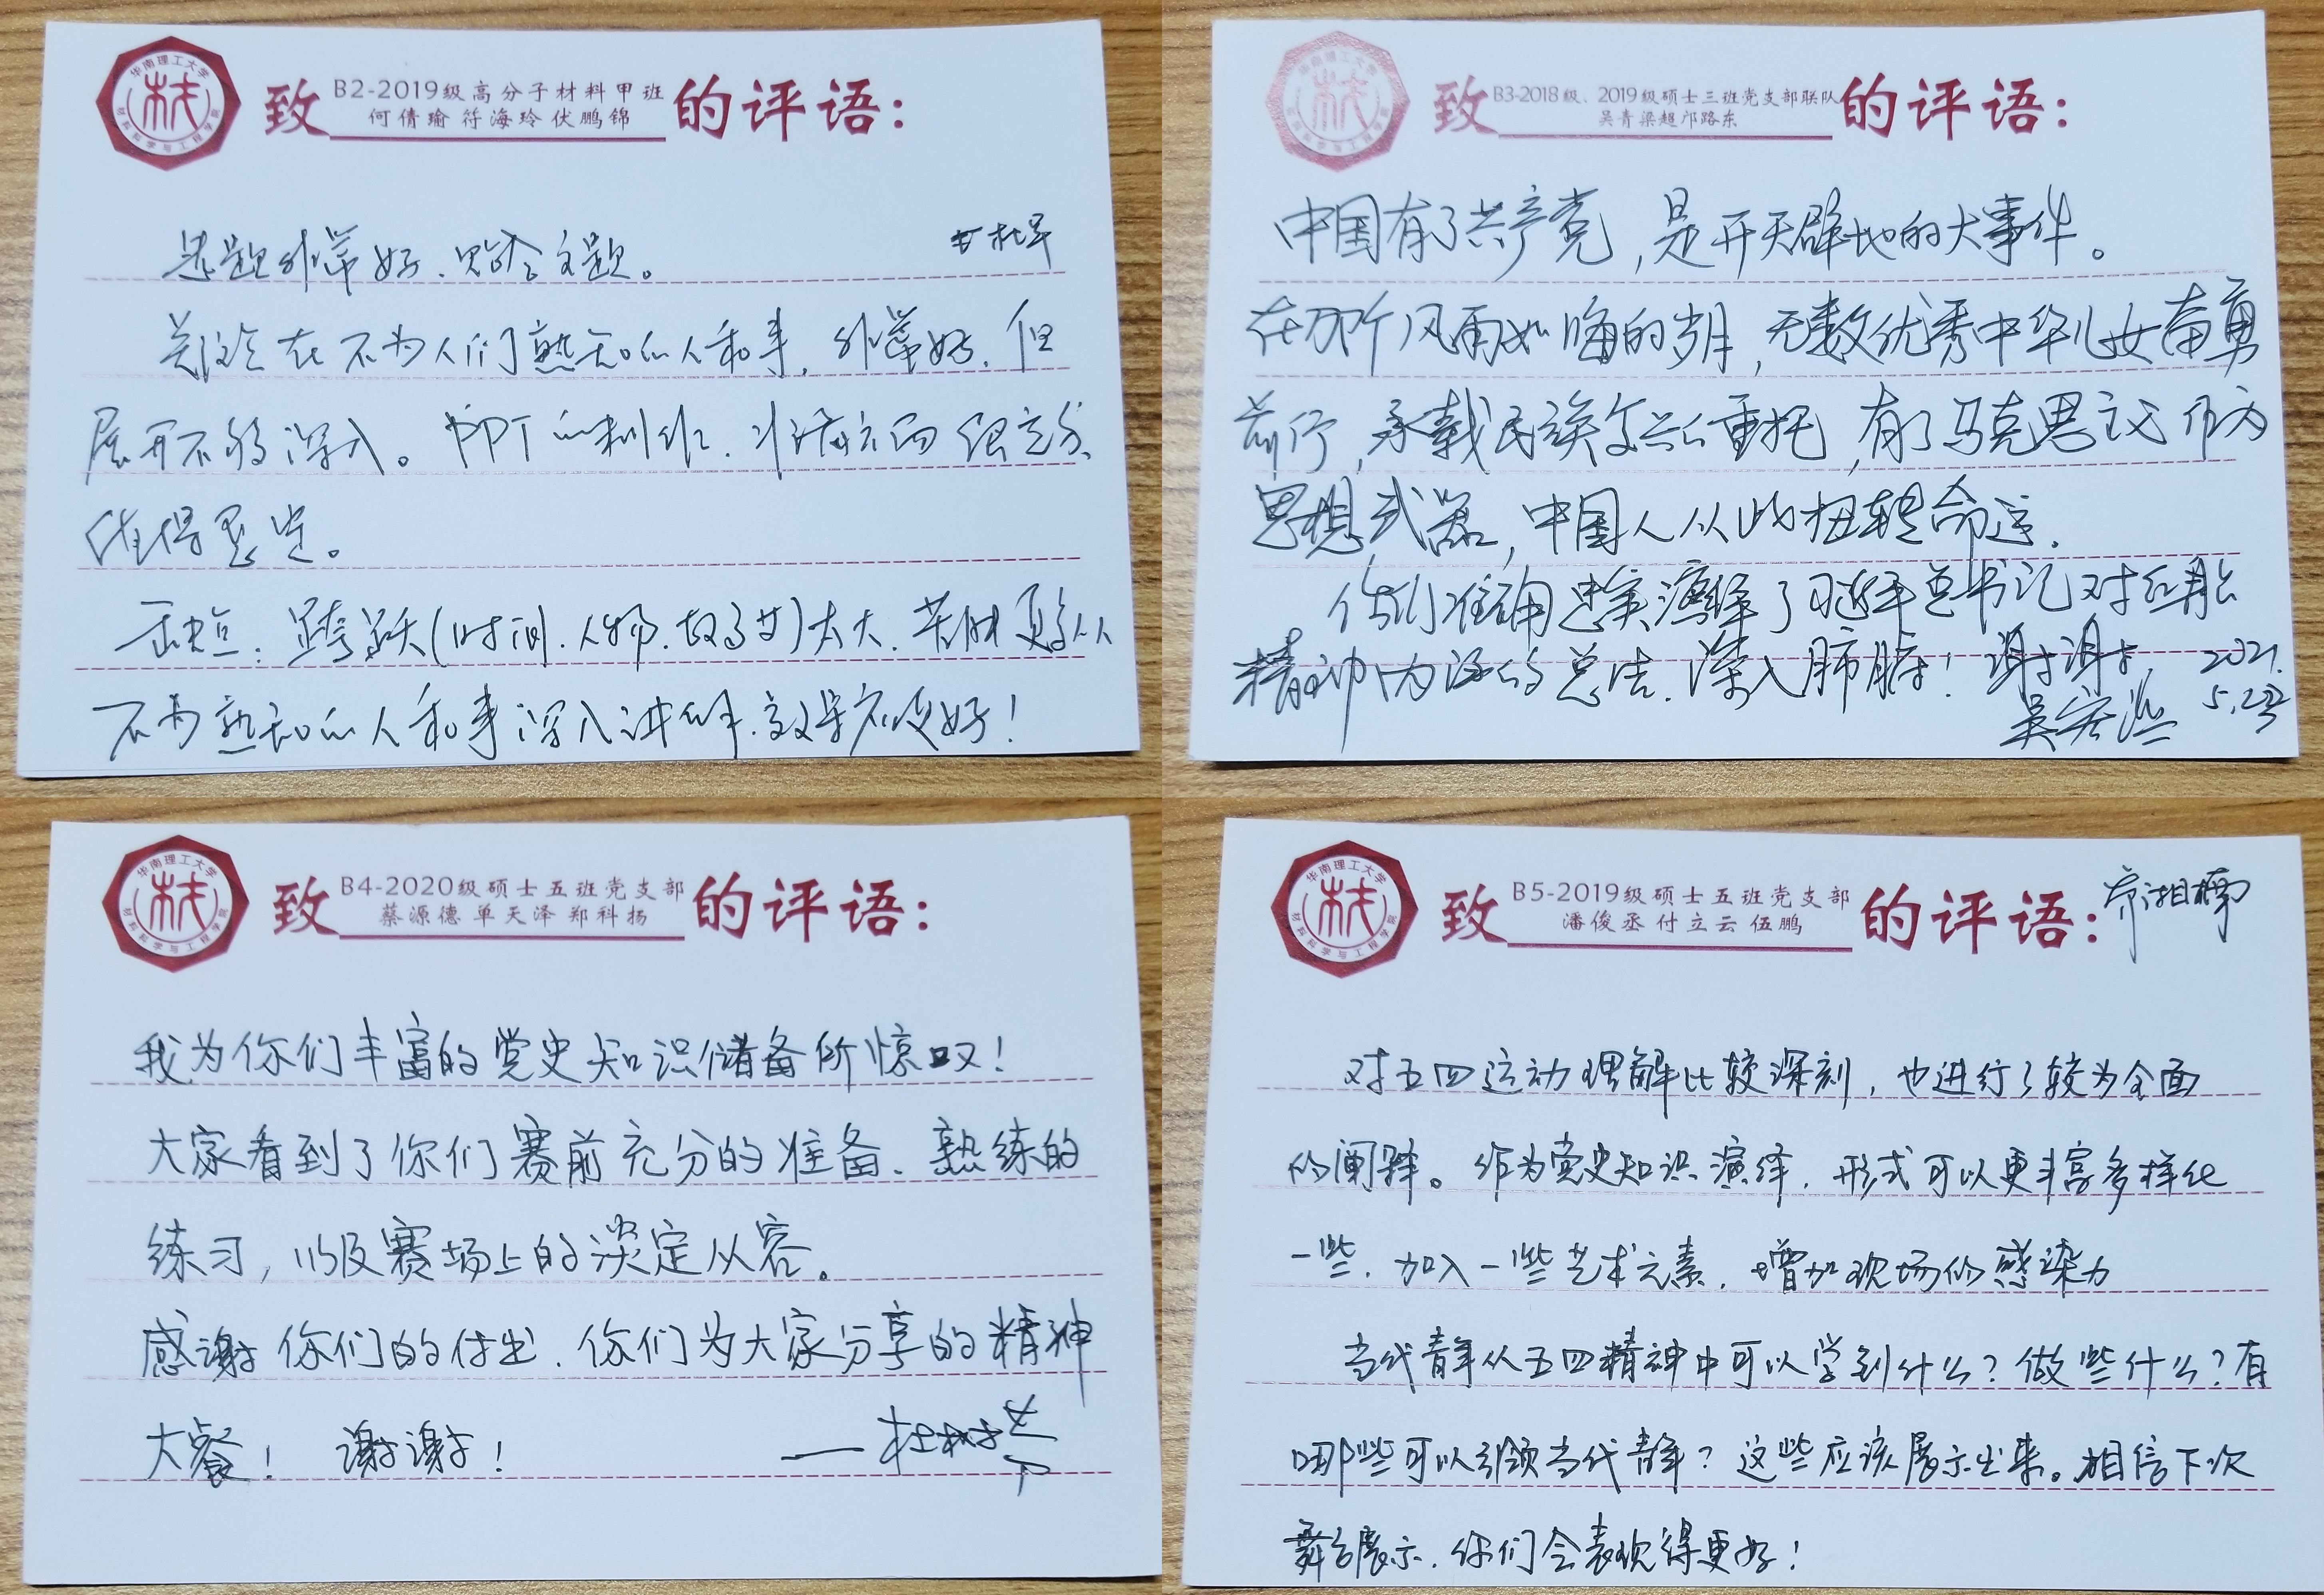 华南理工大学
材
材料科学与工程学院
致 B2-2019级高分子材料甲班 的评语：
何倩瑜 符海玲 伏鹏锦
选题非常好、贴合主题。
关注在不为人们熟知的人和事，非常好，但
展开不够深入。PPT的制作、非常充分、
值得肯定。
缺点：跨跃(时间、人物、故事)太大、若能更多从
不为熟知的人和事深入讲解，效果应更好！
华南理工大学
材
材料科学与工程学院
致 B3-2018级、2019级硕士三班党支部联队 的评语：
吴青梁超邝路东
中国有了共产党，是开天辟地的大事件。
在那个风雨如晦的岁月，无数优秀中华儿女奋勇
前行，承载民族复兴的重托，有了马克思主义作为
思想武器，中国人从此扭转命运．
你们准确忠实演绎了习近平总书记对红船
精神内涵的总结．深入肺腑！谢谢． 2021.
吴宏滨 5.28
华南理工大学
材
材料科学与工程学院
致 B4-2020级硕士五班党支部 的评语：
蔡源德 单天泽 郑科扬
我为你们丰富的党史知识储备所惊叹！
大家看到了你们赛前充分的准备、熟练的
练习，以及赛场上的淡定从容。
感谢你们的付出．你们为大家分享的精神
大餐！ 谢谢！ ——
华南理工大学
材
材料科学与工程学院
致 B5-2019级硕士五班党支部 的评语：
潘俊丞 付立云 伍鹏
对五四运动理解比较深刻，也进行了较为全面
的阐释。作为党史知识演绎，形式可以更丰富多样化
一些，加入一些艺术元素，增加现场的感染力
当代青年从五四精神中可以学到什么？做些什么？有
哪些可以引领当代青年？这些应该展示出来。相信下次
舞台展示，你们会表现得更好！